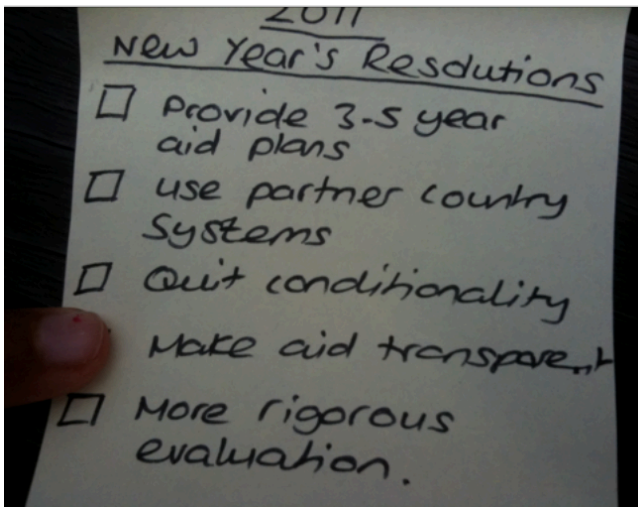 2011
New Year's Resolutions
Provide 3-5 year
aid plans
use partner country
systems
Quit conditionality
Make aid transparent
More rigorous
evaluation.